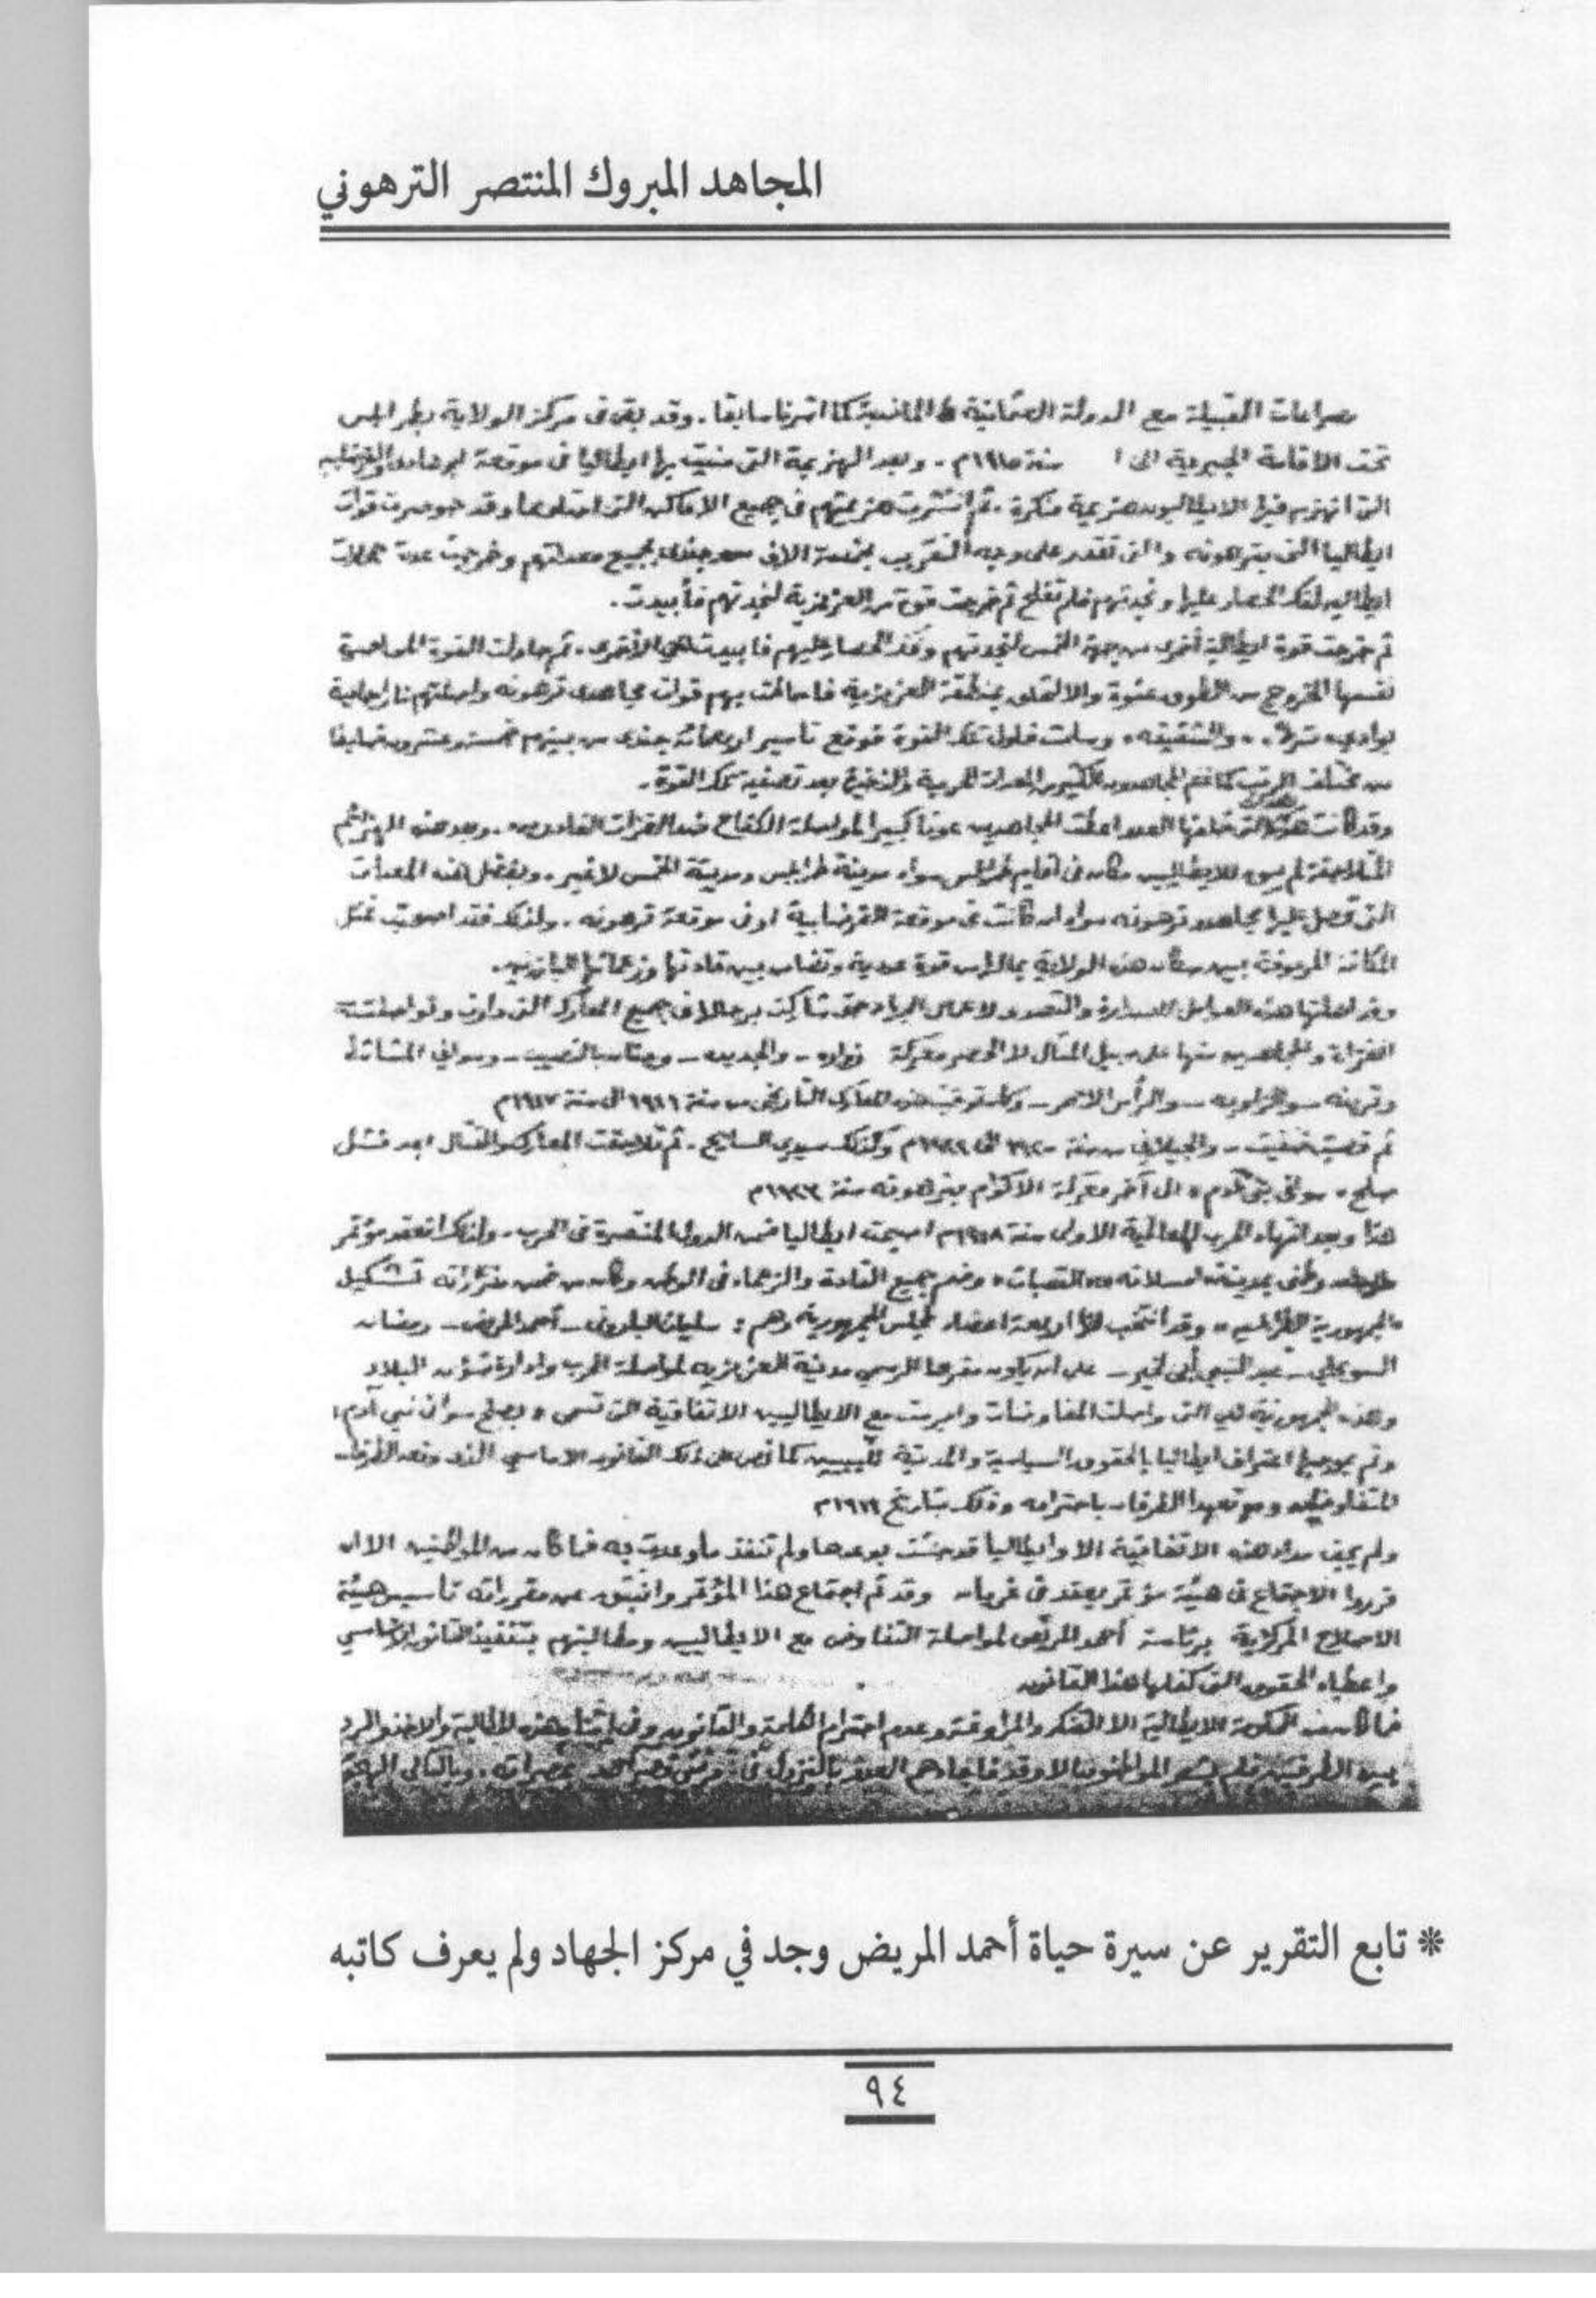 المجاهد المبروك المنتصر الترهوني
صراعات القبيلة مع الدولة العثمانية كما اشرنا سابقا. وقد بقى فى مركز الولاية بطرابلس
تحت الاقامة الجبرية الى سنة ١٩١٥م. وبعد الهزيمة التى منيت بها ايطاليا فى موقعة
التى انهزم فيها الايطاليون هزيمة منكرة. ثم انتشرت هزيمتهم فى جميع الاماكن التى احتلوها وقد حوصرت قوات
ايطاليا التى بترهونه والتى تقدر على وجه التقريب بخمسة الاف جندى بجميع معداتهم وخرجت عدة حملات
ايطاليه لفك الحصار عليها ونجدتهم فلم تفلح ثم خرجت قوة من العزيزية لنجدتهم فأبيدت.
ثم خرجت قوة ايطالية أخرى من جهة الخمس لنجدتهم وفك الحصار عليهم فابيدت هى الأخرى. ثم حاولت القوة المحاصرة
نفسها الخروج من الطوق عنوة والالتحاق بمنطقة العزيزية فاحاطت بهم قوات مجاهدى ترهونه واصلتهم نارا حامية
بوادى والشقيقه وسلمت فلول تلك القوة فوقع تأسير اربعمائة جندى من بينهم خمسة وعشرون ضابطا
من مختلف الرتب كما غنم المجاهدون الكثير من المعدات الحربية والذخيرة بعد تصفية تلك القوة.
وقد كانت هذه التى خلفها العدو اعطت المجاهدين عونا كبيرا لمواصلة الكفاح ضد الغزاة الفادرين. وبعد هذه الهزائم
المتلاحقة لم يبق للايطاليين مكان فى اقليم طرابلس سواء مدينة طرابلس ومدينة الخمس لاغير. وبفضل هذه المعدات
التى تحصل عليها مجاهدو ترهونه سواء ان كانت فى موقعة القرضابية او فى موقعة ترهونه. ولذلك فقد اصبحت تمثل
المكانة المرموقة بين سكان هذه الولاية بمالها من قوة عددية وتضامن بين قادتها وزعمائها البارزين.
وقد اهلتها هذه العوامل للصدارة والتصدر لاعمال الجهاد حتى شاركت برجالها فى جميع المعارك التى دارت
الغزاة والمجاهدين منها على سبيل المثال لا الحصر معركة زواره - والجديده - وسوانى المشاشطه
وقرينه - والزاويه - والرأس الاحمر - من سنة ١٩١٦ الى سنة ١٩١٧م
ثم وكذلك سيدى السايح. ثم تلاحقت المعارك والقتال بعد فشل
صلح سوانى بنى آدم الى آخر معركة بترهونه سنة ١٩٢٣م
هذا وبعد انتهاء الحرب العالمية الاولى سنة ١٩١٨م اصبحت ايطاليا ضمن الدول المنتصرة فى الحرب. ولذلك انعقد مؤتمر
وطنى بمدينة مسلاته القصبات وضم جميع القادة والزعماء فى الوطن وكان من ضمن مقرراته تشكيل
الجمهورية الطرابلسيه وقد انتخب لها اربعة اعضاء لمجلس الجمهورية وهم: سليمان البارونى - أحمد المريض - رمضان
السويحلي - عبد النبي أبى الخير - على ان يكون مقرها الرسمى مدينة العزيزيه لمواصلة الحرب وادارة شؤون البلاد
وهذه الجمهورية هى التى واصلت المفاوضات وابرمت مع الايطاليين الاتفاقية التى تسمى بصلح سوانى بنى آدم
وتم بموجبها اعتراف ايطاليا بالحقوق السياسية والمدنية لليبيين كما نص على ذلك القانون الاساسى الذى
وتعهد الطرفان باحترامه وذلك بتاريخ ١٩١٩م
ولم يجف مداد هذه الاتفاقية الا وايطاليا قد حنثت بوعدها ولم تنفذ ماوعدت به فما كان من المواطنين الا ان
قرروا الاجتماع فى هيئة مؤتمر يعقد فى غريان وقد تم اجتماع هذا المؤتمر وانبثق عن مقرراته تأسيس هيئة
الاصلاح المركزية برئاسة أحمد المريض لمواصلة التفاوض مع الايطاليين ومطالبتهم بتنفيذ القانون الاساسي
واعطاء الحقوق التى كفلها هذا القانون
فما كان من الحكومة الايطالية الا التنكر والمراوغة وعدم احترام الكلمة والقانون وفى هذه المطالبة والاخذ والرد
بين الطرفين فلم يشعر المواطنون الا وقد فاجأهم العدو بالنزول فى قصر أحمد بمصراته. وبالتالى
* تابع التقرير عن سيرة حياة أحمد المريض وجد في مركز الجهاد ولم يعرف كاتبه
٩٤